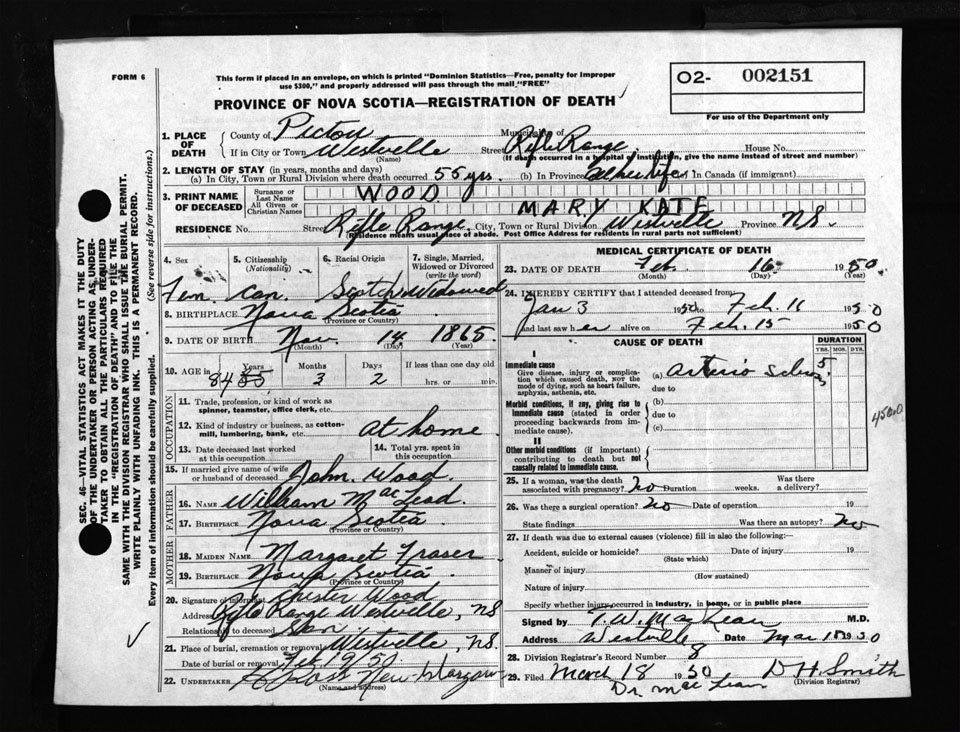 FORM 6
This form if placed in an envelope, on which is printed "Dominion Statistics—Free, penalty for improper
use $300," and properly addressed will pass through the mail "FREE"
PROVINCE OF NOVA SCOTIA—REGISTRATION OF DEATH
O2- 002151
For use of the Department only
SEC. 46—VITAL STATISTICS ACT MAKES IT THE DUTY
OF THE UNDERTAKER OR PERSON ACTING AS UNDER-
TAKER TO OBTAIN ALL THE PARTICULARS REQUIRED
IN THE "REGISTRATION OF DEATH" AND TO FILE THE
SAME WITH THE DIVISION REGISTRAR WHO SHALL ISSUE THE BURIAL PERMIT.
WRITE PLAINLY WITH UNFADING INK. THIS IS A PERMANENT RECORD.
Every item of information should be carefully supplied. (See reverse side for instructions.)
1. PLACE OF DEATH
County of Pictou Municipality of
If in City or Town Westville Street Rifle Range House No.
(Name) (If death occurred in a hospital or institution, give the name instead of street and number)
2. LENGTH OF STAY (in years, months and days)
(a) In City, Town or Rural Division where death occurred 55 yrs. (b) In Province all her life (c) In Canada (if immigrant)
3. PRINT NAME OF DECEASED
Surname or Last Name WOOD
All Given or Christian Names MARY KATE
RESIDENCE No. Street Rifle Range City, Town or Rural Division Westville Province N.S.
(Residence means usual place of abode. Post Office Address for residents in rural parts not sufficient)
4. Sex 5. Citizenship (Nationality) 6. Racial Origin 7. Single, Married, Widowed or Divorced (write the word)
Fem. Can. Scotch Widowed
8. BIRTHPLACE Nova Scotia
(Province or Country)
9. DATE OF BIRTH Nov. 14 1865
(Month) (Day) (Year)
10. AGE IN Years Months Days If less than one day old
84 85 3 2 hrs. or min.
OCCUPATION
11. Trade, profession, or kind of work as spinner, teamster, office clerk, etc.
12. Kind of industry or business, as cotton-mill, lumbering, bank, etc. At home
13. Date deceased last worked at this occupation 14. Total yrs. spent in this occupation
15. If married give name of wife or husband of deceased John Wood
FATHER
16. NAME William MacLeod
17. BIRTHPLACE Nova Scotia
(Province or Country)
MOTHER
18. MAIDEN NAME Margaret Fraser
19. BIRTHPLACE Nova Scotia
(Province or Country)
20. Signature of informant Chester Wood
Address Rifle Range Westville, NS
Relationship to deceased Son
21. Place of burial, cremation or removal Westville, NS.
Date of burial or removal Feb 19/50
22. UNDERTAKER Ross New Glasgow
(Name and address)
MEDICAL CERTIFICATE OF DEATH
23. DATE OF DEATH Feb. 16 1950
(Month) (Day) (Year)
24. I HEREBY CERTIFY that I attended deceased from
Jan 3 1950 to Feb. 16 1950
and last saw her alive on Feb. 15 1950
CAUSE OF DEATH DURATION
YRS. MOS. DYS.
I
Immediate cause
Give disease, injury or complication which caused death, NOT the mode of dying, such as heart failure, asphyxia, asthenia, etc.
(a) Arterio sclerosis 5
due to
Morbid conditions, if any, giving rise to immediate cause (stated in order proceeding backwards from immediate cause).
(b)
due to
(c)
4500
II
Other morbid conditions (if important) contributing to death but not causally related to immediate cause.
25. If a woman, was the death associated with pregnancy? No Duration weeks. Was there a delivery?
26. Was there a surgical operation? No Date of operation 19
State findings Was there an autopsy? No
27. If death was due to external causes (violence) fill in also the following:—
Accident, suicide or homicide? Date of injury 19
(State which)
Manner of injury
(How sustained)
Nature of injury
Specify whether injury occurred in industry, in home, or in public place
Signed by T.W. MacLean M.D.
Address Westville Date Mar 18 1950
28. Division Registrar's Record Number 8
29. Filed March 18 1950 D H Smith
(Division Registrar)
Dr. MacLean